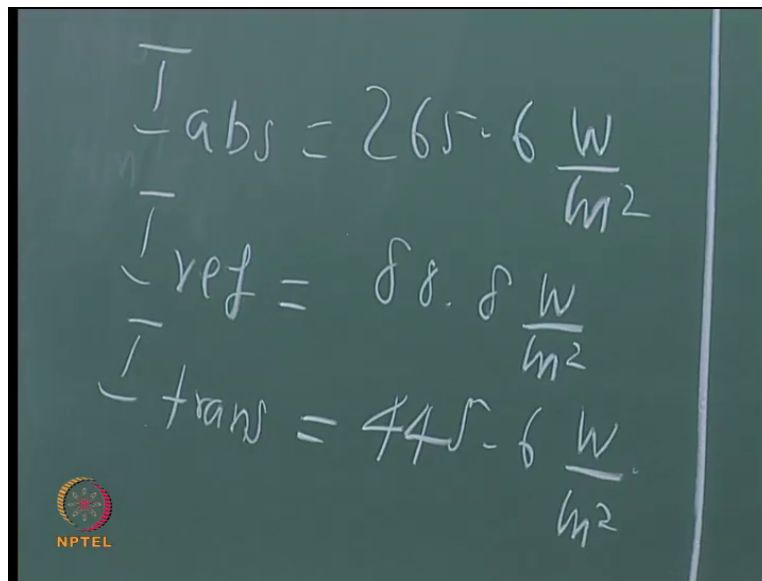 I abs = 265.6 W/m²
I ref = 88.8 W/m²
I trans = 445.6 W/m²
NPTEL